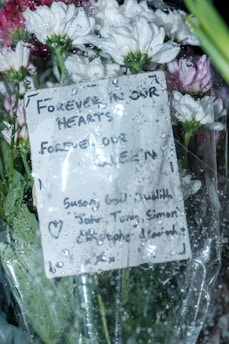 FOREVER IN OUR
HEARTS
FOREVER OUR
QUEEN
Susan, Gail, Judith
John, Tony, Simon
Christopher
xxx